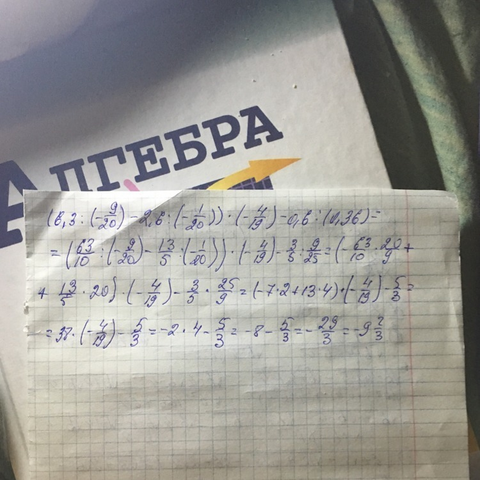 АЛГЕБРА
(6,3 : (-9/20) - 2,6 : (-1/20)) · (-4/19) - 0,6 : (0,36) =
= (63/10 : (-9/20) - 13/5 : (-1/20)) · (-4/19) - 3/5 : 9/25 = (-63/10 · 20/9 +
+ 13/5 · 20) · (-4/19) - 3/5 · 25/9 = (-7·2+13·4) · (-4/19) - 5/3 =
= 38 · (-4/19) - 5/3 = -2 · 4 - 5/3 = -8 - 5/3 = -29/3 = -9 2/3